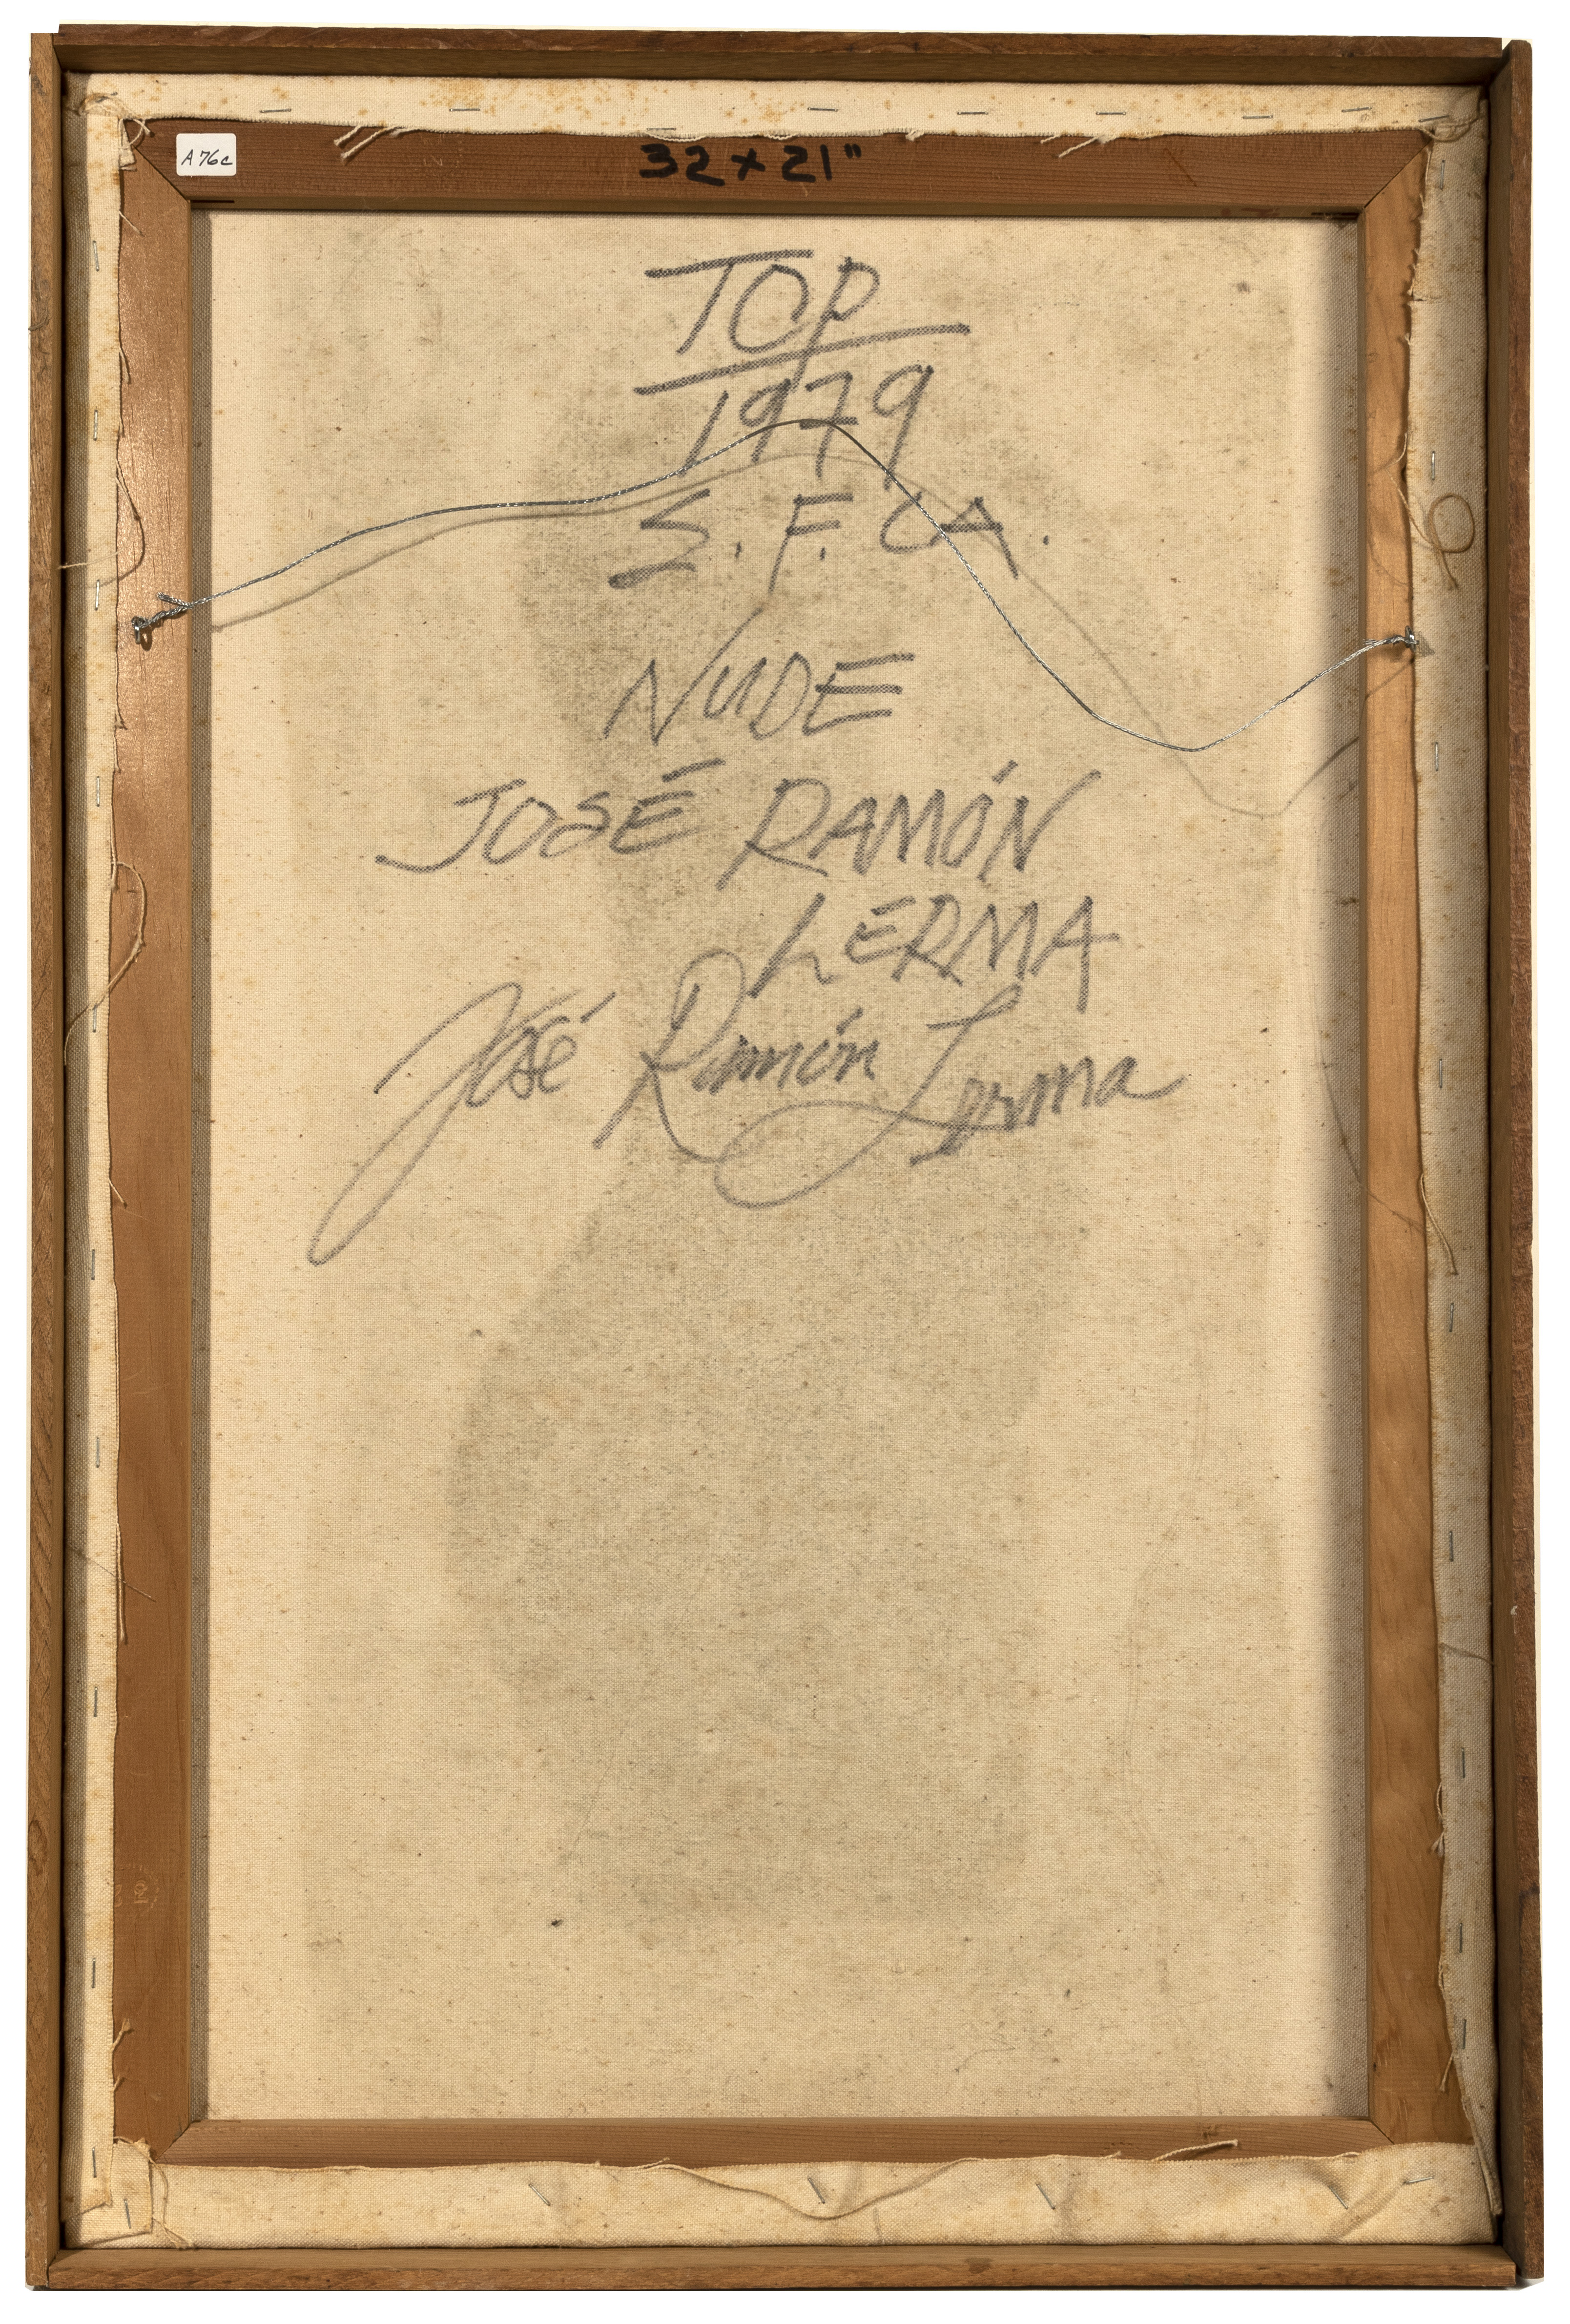 A76c
32 x 21"
TOP
1979
S. F. CA.
NUDE
JOSÉ RAMÓN
LERMA
José Ramón Lerma